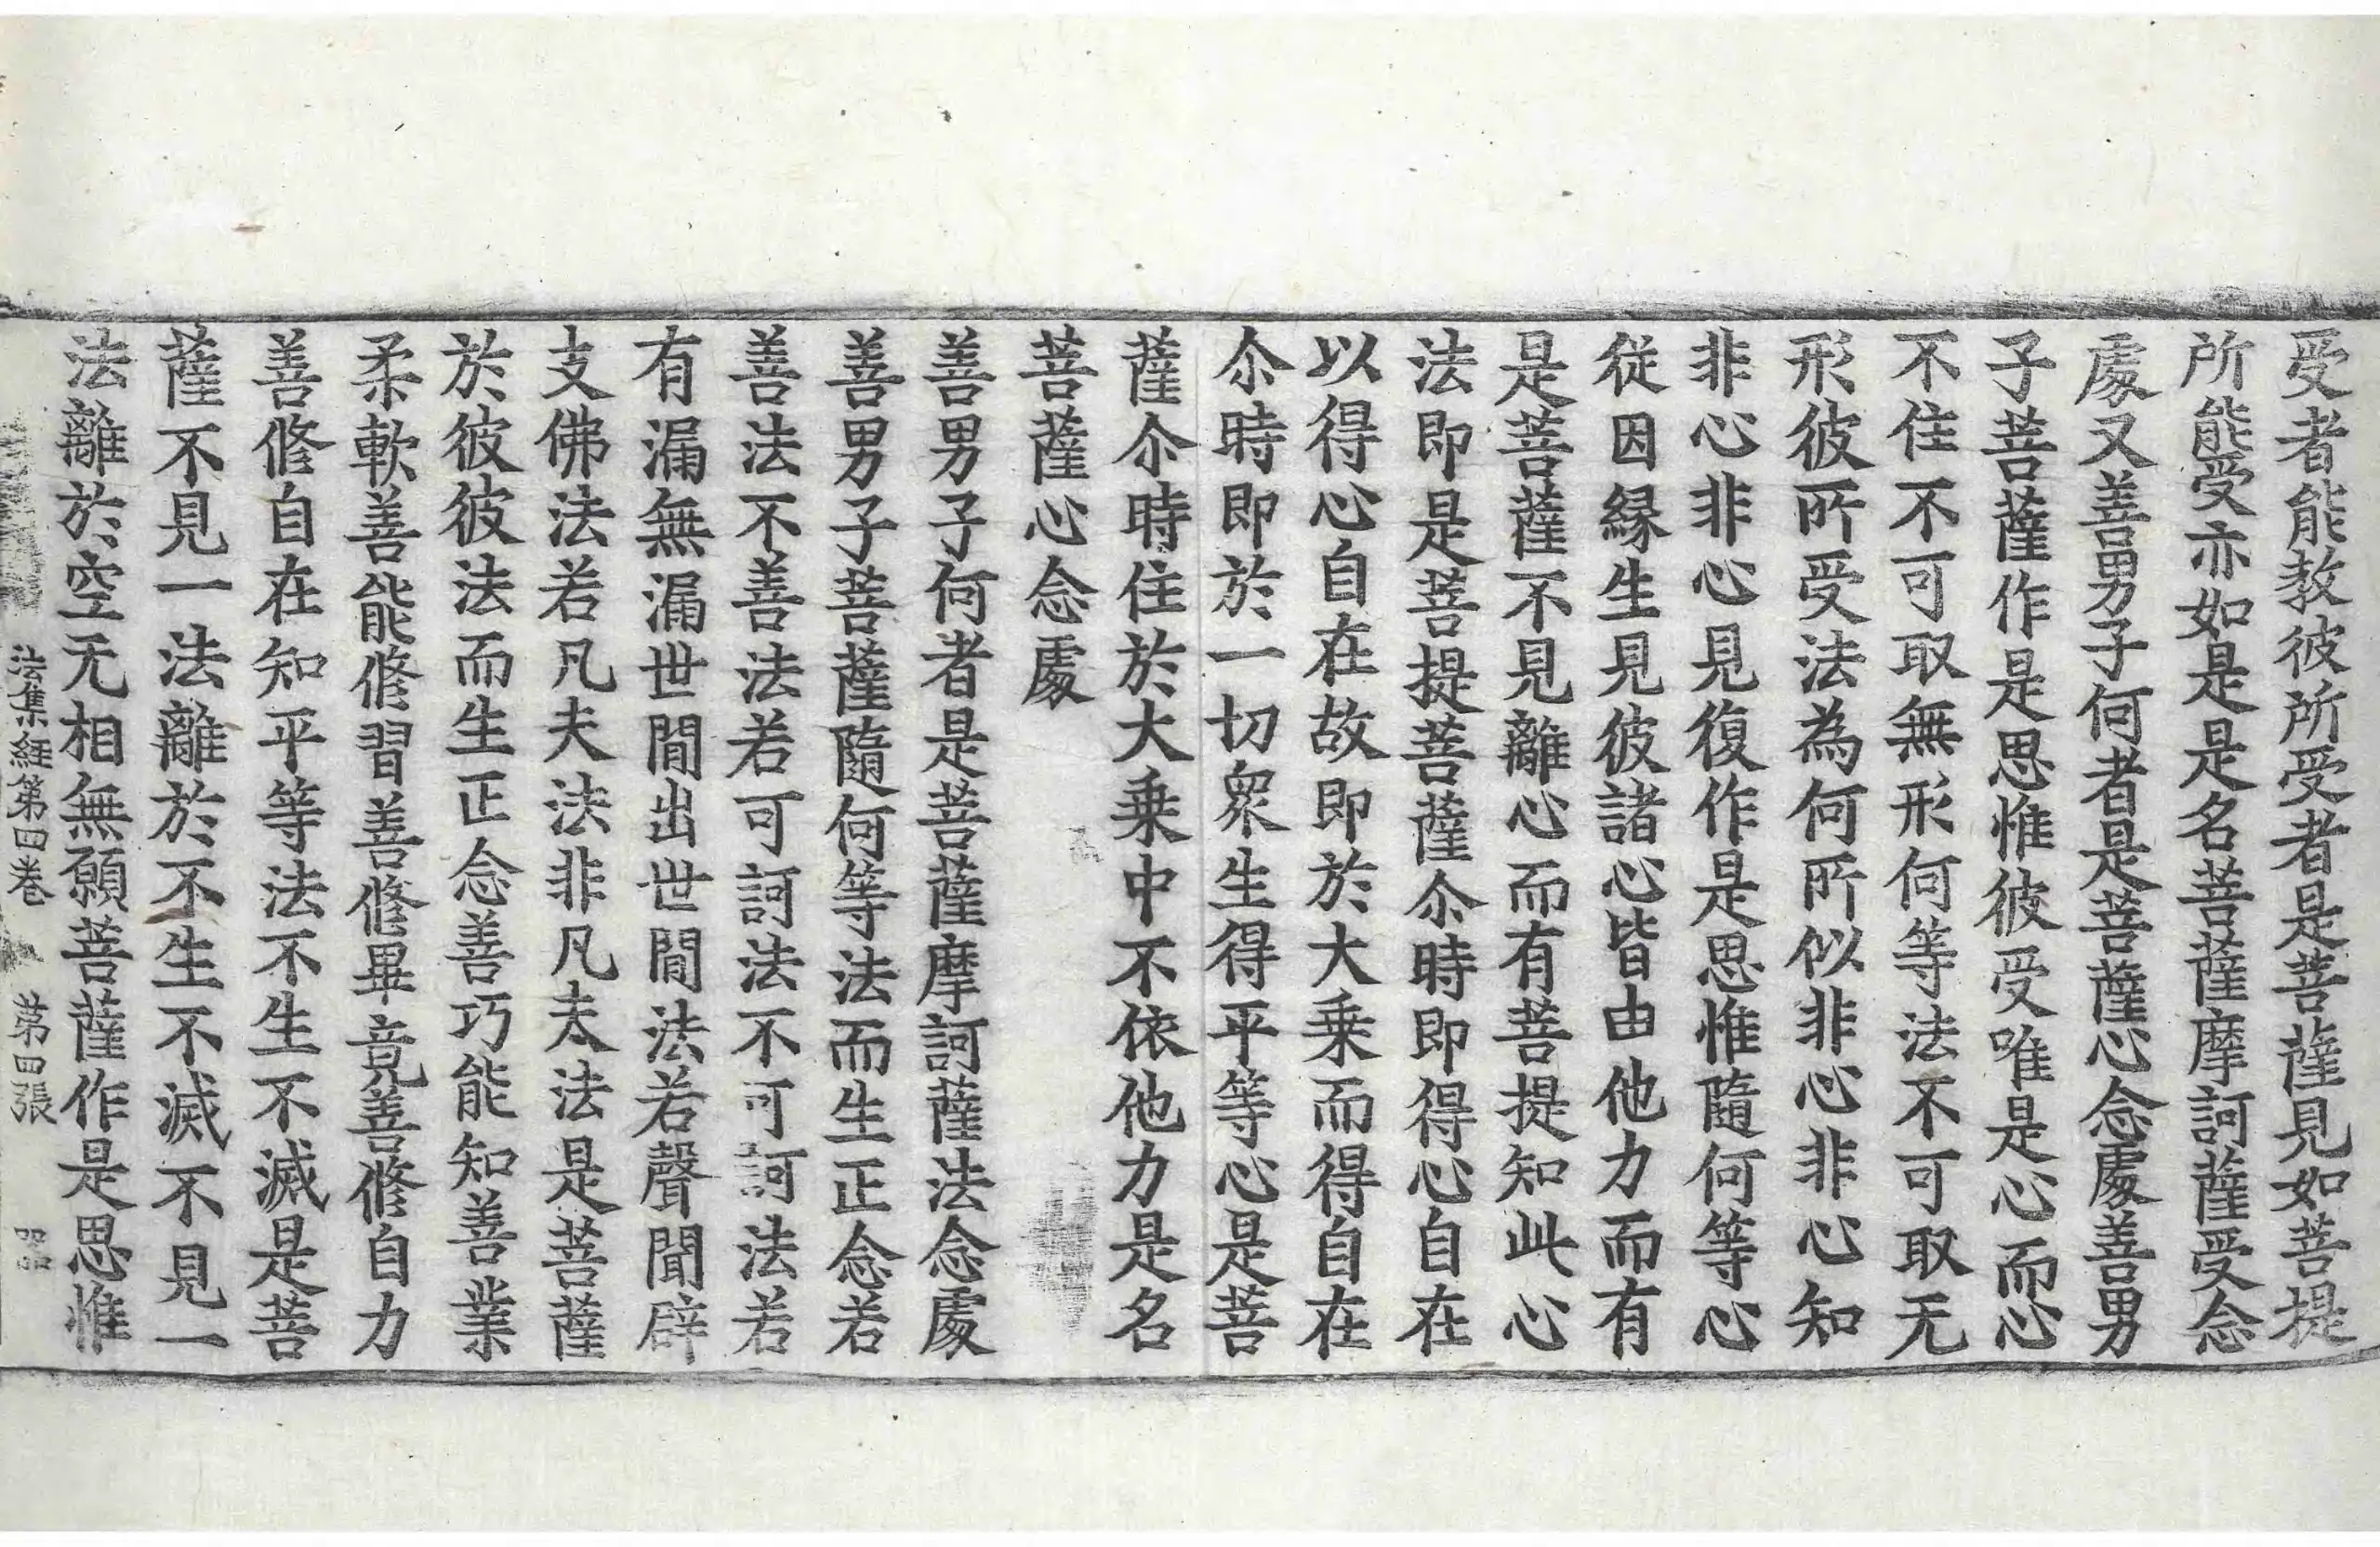 受者能教彼所受者是菩薩見如菩提
所能受亦如是是名菩薩摩訶薩受念
處又善男子何者是菩薩心念處善男
子菩薩作是思惟彼受唯是心而心
不住不可取無形何等法不可取无
形彼所受法為何所似非心非心知
非心非心見復作是思惟隨何等心
従因縁生見彼諸心皆由他力而有
是菩薩不見離心而有菩提知此心
法即是菩提菩薩尒時即得心自在
以得心自在故即於大乗而得自在
尒時即於一切衆生得平等心是菩
薩尒時住於大乗中不依他力是名
菩薩心念處
善男子何者是菩薩摩訶薩法念處
善男子菩薩隨何等法而生正念若
善法不善法若可訶法不可訶法若
有漏無漏世閒出世閒法若聲聞辟
支佛法若凡夫法非凡夫法是菩薩
於彼彼法而生正念善巧能知善業
柔軟善能修習善修畢竟善修自力
善修自在知平等法不生不滅是菩
薩不見一法離於不生不滅不見一
法離於空无相無願菩薩作是思惟
法集経第四卷 第四張 器